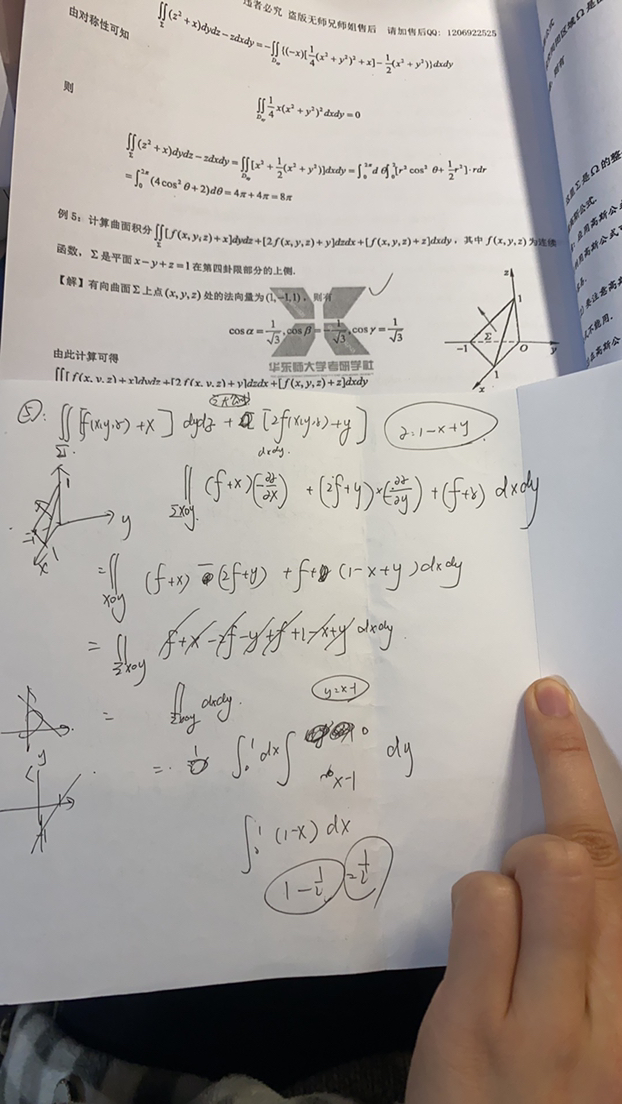 违者必究 盗版无师兄师姐售后 请加售后QQ：1206922525
由对称性可知
∬_Σ(z²+x)dydz−zdxdy=−∬_{D_xy}{(−x)[1/4(x²+y²)²+x]−1/2(x²+y²)}dxdy
则
∬_{D_xy} 1/4 x(x²+y²)²dxdy=0
∬_Σ(z²+x)dydz−zdxdy=∬_{D_xy}[x²+1/2(x²+y²)]dxdy=∫₀^{2π}dθ∫₀²[r²cos²θ+1/2r²]·rdr
=∫₀^{2π}(4cos²θ+2)dθ=4π+4π=8π
例 5：计算曲面积分∬_Σ[f(x,y,z)+x]dydz+[2f(x,y,z)+y]dzdx+[f(x,y,z)+z]dxdy，其中 f(x,y,z) 为连续
函数，Σ是平面 x−y+z=1 在第四卦限部分的上侧.
【解】有向曲面Σ上点(x,y,z)处的法向量为(1,−1,1)，则有
cosα=1/√3,cosβ=−1/√3,cosγ=1/√3
华东师大考研学社
z
1
−1 Σ O y
1
x
由此计算可得
∬[f(x,y,z)+x]dydz+[2f(x,y,z)+y]dzdx+[f(x,y,z)+z]dxdy
⑤: ∬_Σ [f(x,y,z)+x] dydz + [2f(x,y,z)+y] z=1−x+y
dxdy.
∬_{Σxoy} (f+x)(−∂z/∂x) +(2f+y)×(−∂z/∂y)+(f+z) dxdy
1
y
−1 1
x
=∬_{xoy} (f+x) −(2f+y) +f+(1−x+y)dxdy
=∬_{Σxoy} f+x−2f−y+f+1−x+y dxdy
= ∬_{Σxoy} dxdy. y=x−1
= ∫₀¹dx∫_{x−1}^0 dy
y
∫₀¹(1−x)dx
1−1/2=1/2